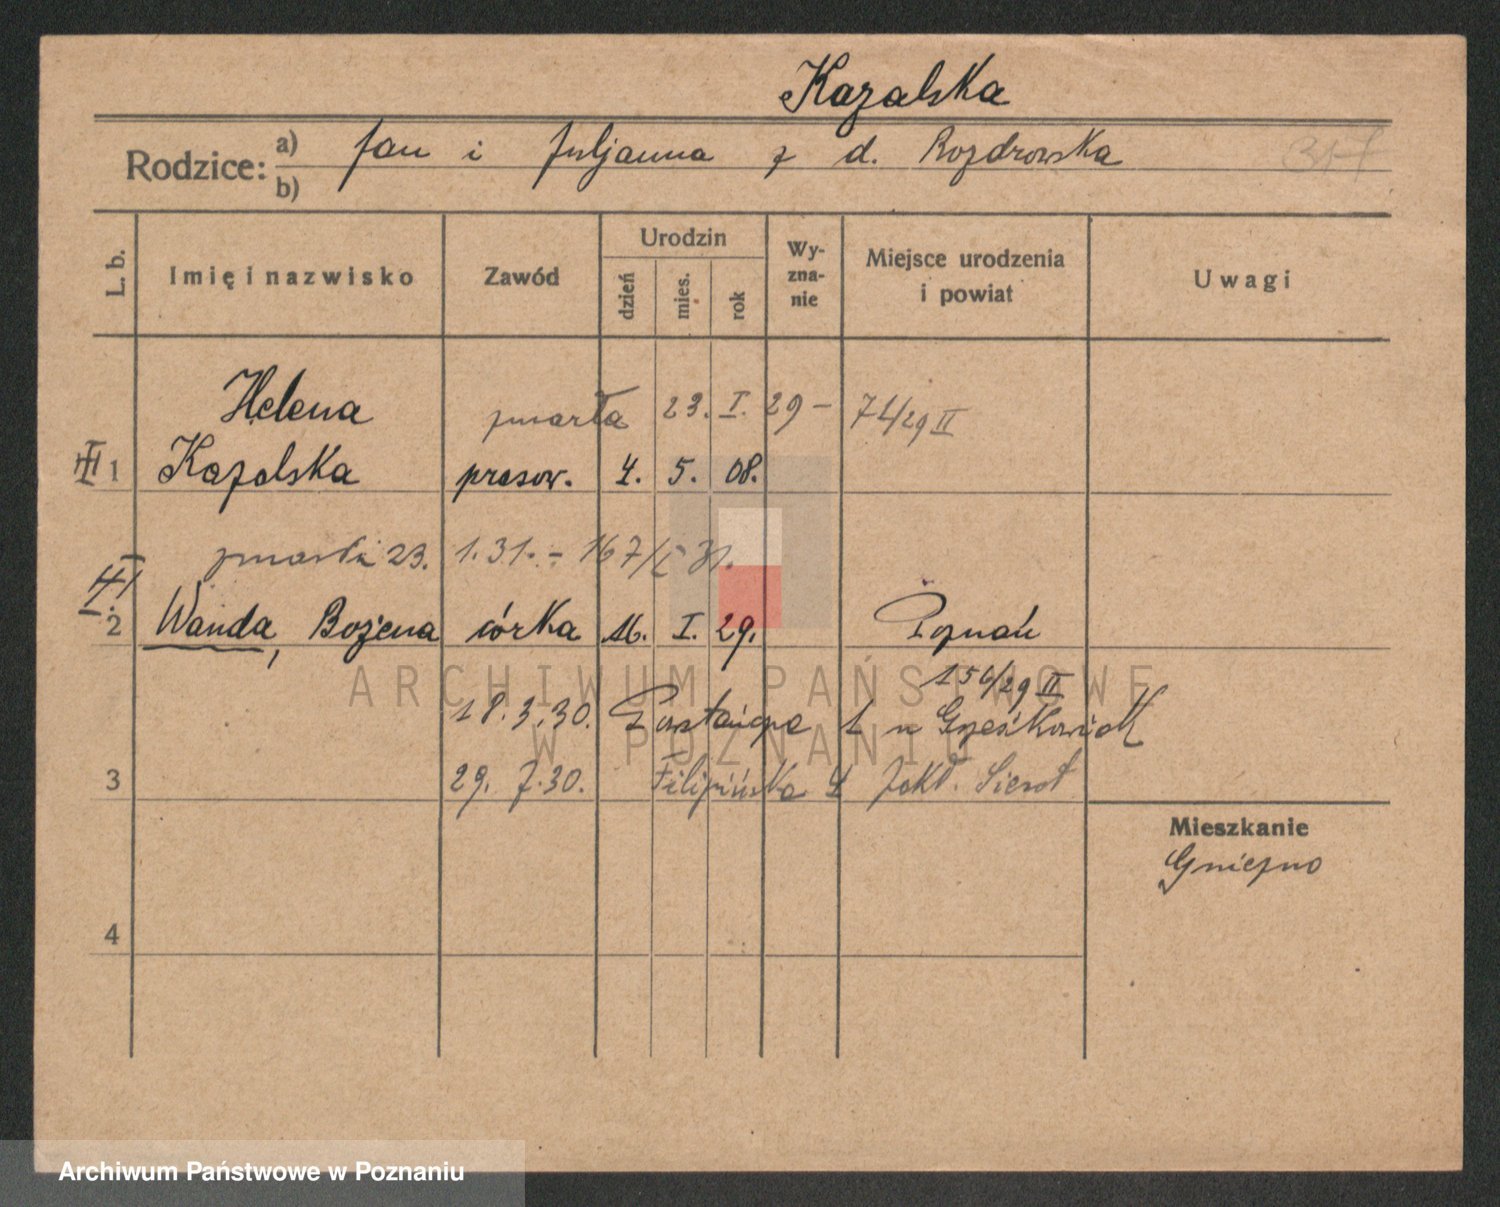 Kazalska
Rodzice: a) Jan i Juljanna z d. Rozdrowska
b)
L. b. Imię i nazwisko Zawód Urodzin dzień mies. rok Wyznanie Miejsce urodzenia i powiat Uwagi
Helena zmarła 23. I. 29 – 71/29 II
1 Kazalska prasow. 4. 5. 08.
zmarła 23. 1. 31. – 167/ 31.
2 Wanda, Bożena córka 16. I. 29. Poznań
156/29 II
18. 3. 30. u Grześkowiak
3 29. 7. 30. Filipińska Zakł. Sierot
Mieszkanie
Gniezno
4
ARCHIWUM PAŃSTWOWE
W POZNANIU
Archiwum Państwowe w Poznaniu